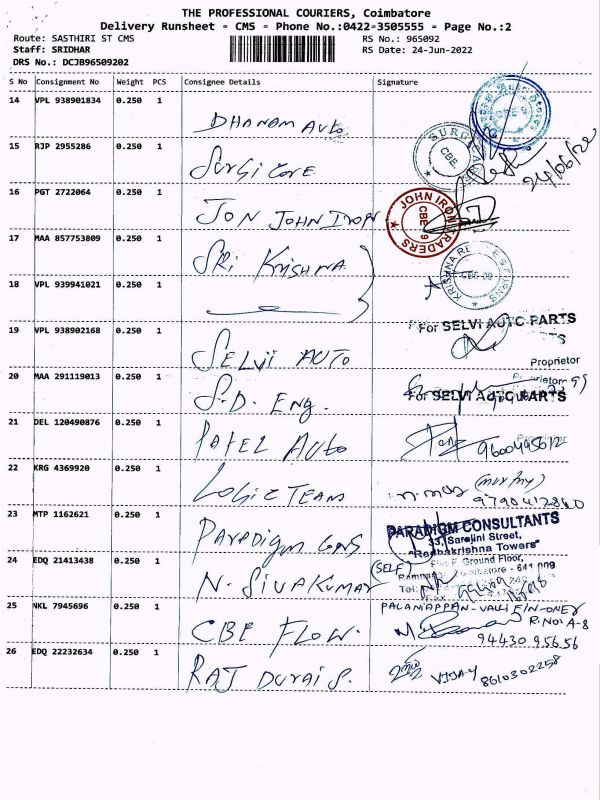 THE PROFESSIONAL COURIERS, Coimbatore
Delivery Runsheet - CMS - Phone No.:0422-3505555 - Page No.:2
Route: SASTHIRI ST CMS
RS No.: 965092
Staff: SRIDHAR
RS Date: 24-Jun-2022
DRS No.: DCJB96509202
S No Consignment No Weight PCS Consignee Details Signature
14 VPL 938901834 0.250 1
DHANAM Auto
15 RJP 2955286 0.250 1
SURGI
CBE
24/06/22
Surgi Core
16 PGT 2722064 0.250 1
JON JOHN IRON
JOHN IRON TRADERS
CBE-9
17 MAA 857753809 0.250 1
SRi KRishna
KRISHNA
18 VPL 939941021 0.250 1
19 VPL 938902168 0.250 1
For SELVI AUTO PARTS
SELVI AUTO
Proprietor
20 MAA 291119013 0.250 1
S.D. Eng.
For SELVI AUTO PARTS
21 DEL 120490876 0.250 1
PATEL Auto
22 KRG 4369920 0.250 1
LOGIC TEAM
9790412860
23 MTP 1162621 0.250 1
PARADIGM CONSULTANTS
33, Sarojini Street,
"Radhakrishna Towers"
Paradigm Cons
Ground Floor,
24 EDQ 21413438 0.250 1
(SELF)
641 009
N. SIVAKUMAR
25 NKL 7945696 0.250 1
PALANIAPPAN-VALLI
CBE FLOW.
94430 95656
26 EDQ 22232634 0.250 1
RAJ DURAI S.
VIJAY 8610302258